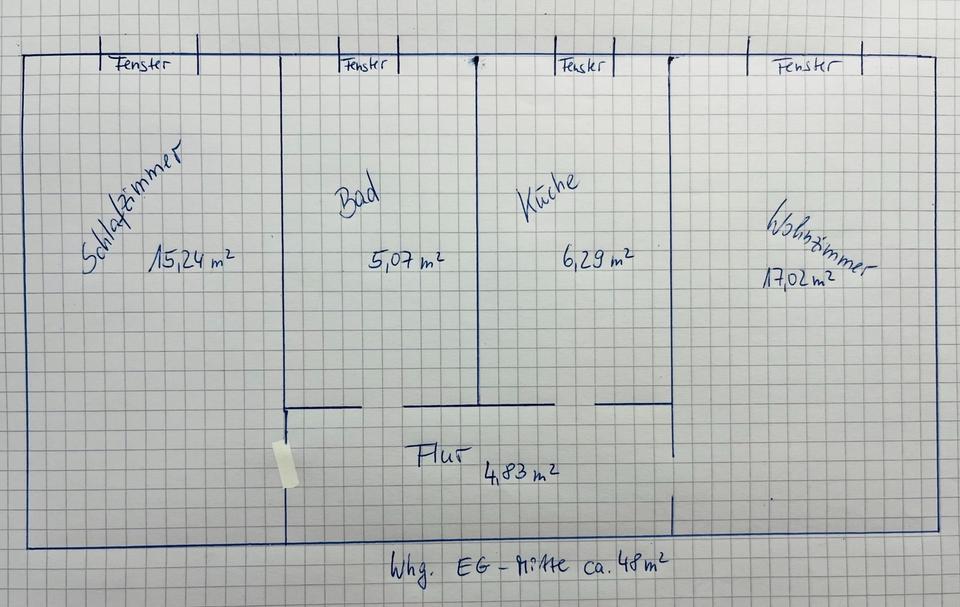 Fenster
Fenster
Fenster
Fenster
Schlafzimmer
15,24 m²
Bad
5,07 m²
Küche
6,29 m²
Wohnzimmer
17,02 m²
Flur
4,83 m²
Whg. EG - Mitte ca. 48 m²